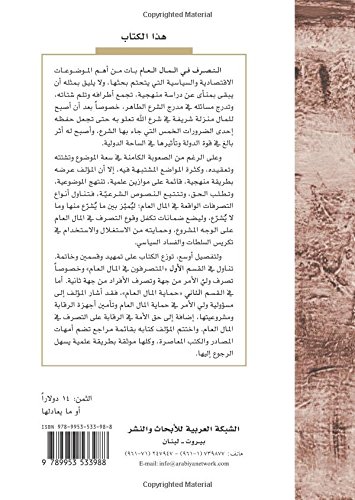 Copyrighted Material
هذا الكتاب
التصرف في المال العام بات من أهم الموضوعات
الاقتصادية والسياسية التي يتحتم بحثها، ولا يليق بمثله أن
يبقى بمنأى عن دراسة منهجية، تجمع أطرافه وتلم شتاته،
وتدرج مسائله في مدرج الشرع الطاهر، خصوصاً بعد أن أصبح
للمال منزلة شريفة في شرع الله تعلو به حتى تجعل حفظه
إحدى الضرورات الخمس التي جاء بها الشرع، وأصبح له أثر
بالغ في قوة الدولة وتأثيرها في الساحة الدولية.
وعلى الرغم من الصعوبة الكامنة في سعة الموضوع وتشتته
وتعقيده، وكثرة المواضع المشتبهة فيه، إلا أن المؤلف عرضه
بطريقة منهجية، قائمة على موازين علمية، تنتهج الموضوعية،
وتطلب الحق، وتتتبع النصوص الشرعيّة، فتناول أنواع
التصرفات الواقعة في المال العام؛ ليُميّز بين ما يُشرّع منها وما
لا يُشرّع، وليضع ضمانات تكفل وقوع التصرف في المال العام
على الوجه المشروع، وحمايته من الاستغلال والاستخدام في
تكريس السلطات والفساد السياسي.
ولتفصيل أوسع، توزع الكتاب على تمهيد وقسمين وخاتمة.
تناول في القسم الأول «المتصرفون في المال العام»، وخصوصاً
تصرف وليّ الأمر من جهة وتصرف الأفراد من جهة ثانية. أما
في القسم الثاني «حماية المال العام»، فقد أشار المؤلف إلى
مسؤولية ولي الأمر في حماية المال العام، وتأمين أجهزة الرقابة
ومشروعيتها، إضافة إلى حق الأمة في الرقابة على التصرف في
المال العام. واختتم المؤلف كتابه بقائمة مراجع تضم أمهات
المصادر والكتب المعاصرة، وكلها موثقة بطريقة علمية يسهل
الرجوع إليها.
الثمن: ١٤ دولاراً
أو ما يعادلها
الشبكة العربية للأبحاث والنشر
بيروت - لبنان
هاتف: ٧٣٩٨٧٧ (١-٩٦١) - ٢٤٧٩٤٧ (٧١-٩٦١)
E-mail: info@arabiyanetwork.com
ISBN 978-9953-533-98-8
9 789953 533988
Copyrighted Material